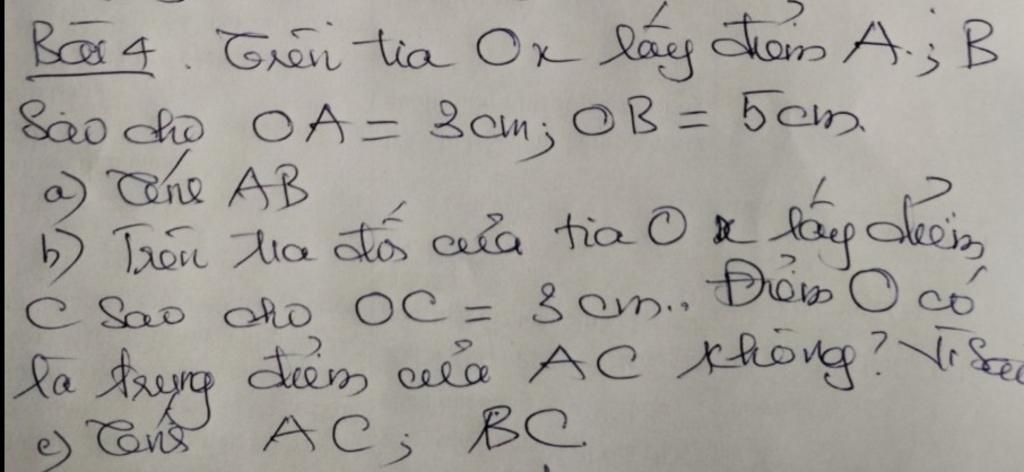 Bài 4. Trên tia Ox lấy điểm A; B
Sao cho OA = 3cm; OB = 5cm.
a) Tính AB
b) Trên tia đối của tia Ox lấy điểm
C Sao cho OC = 3 cm.. Điểm O có
là trung điểm của AC không? Vì Sao
c) Tính AC; BC